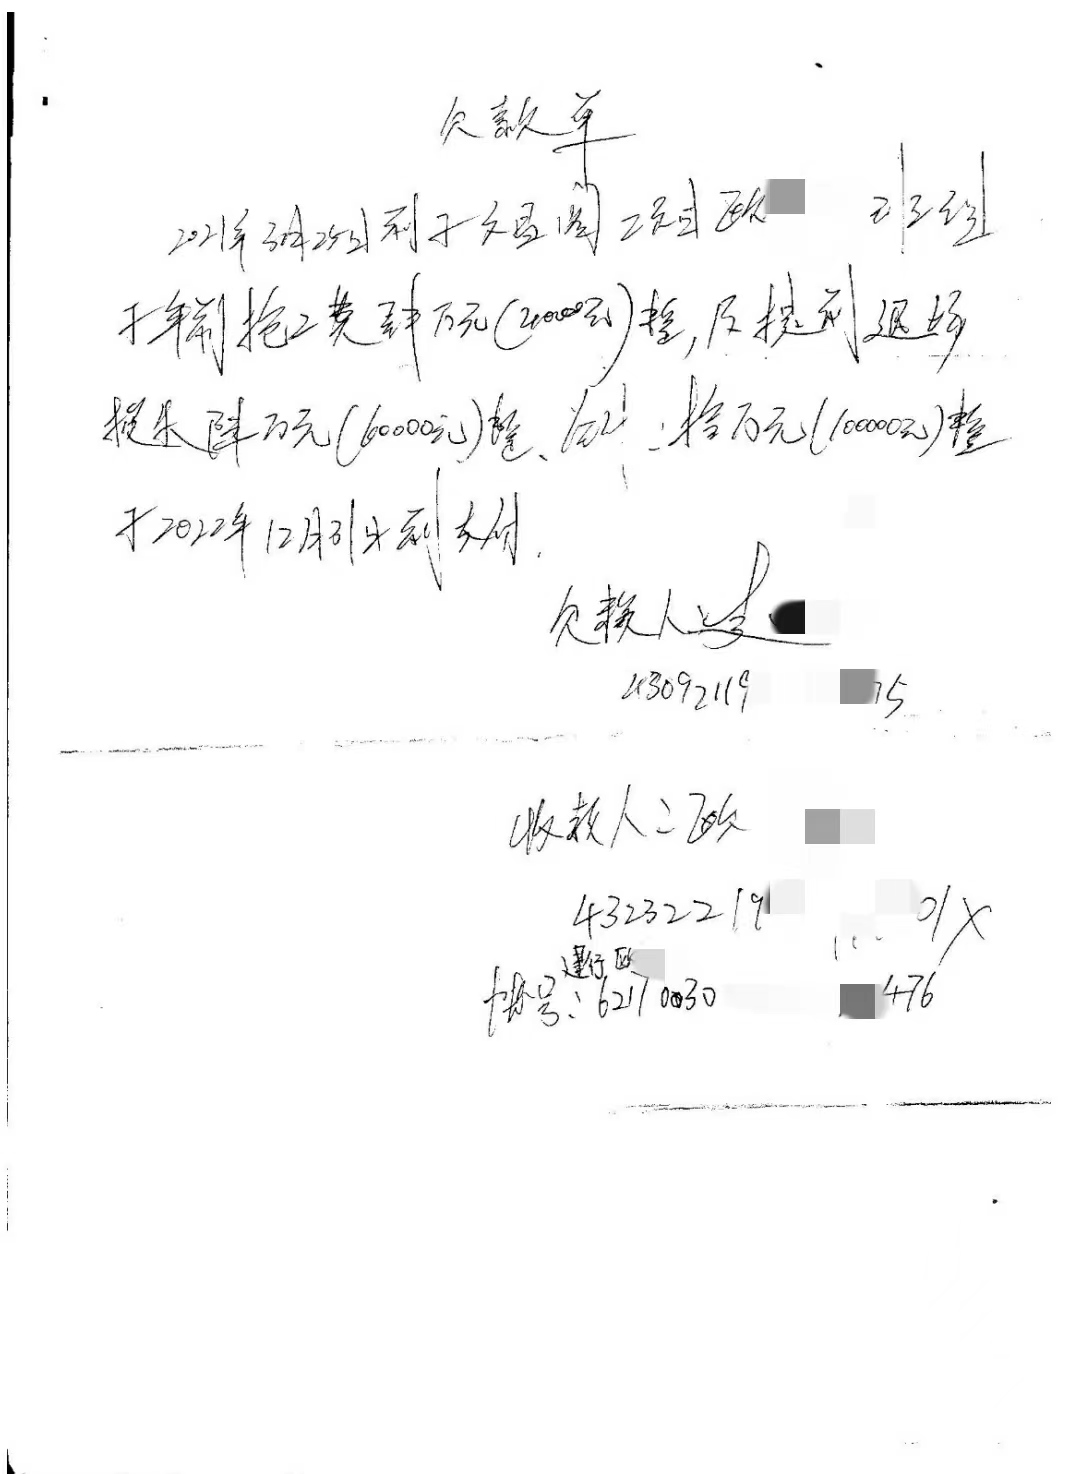 欠款单
2021年3月25日到于文昌阁工项目欧 班组
于年前抢工费肆万元(40000元)整,及提前退场
损失陆万元(60000元)整、合计:拾万元(100000元)整
于2022年12月31号前支付.
欠款人
43092119 75
收款人:欧
43232219 01X
建行欧
卡号:6217 0030 476